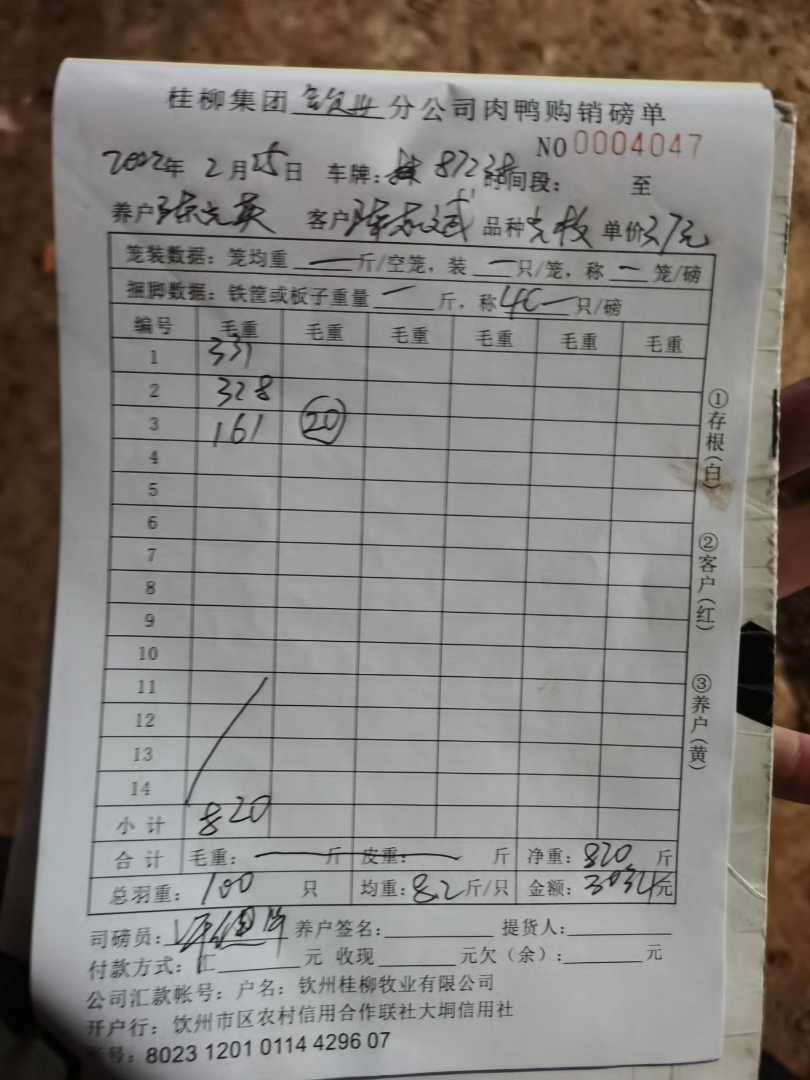 桂柳集团 分公司肉鸭购销磅单
NO 0004047
2022年 2月25日 车牌: 时间段: 至
养户 客户 品种 单价3.7元
笼装数据: 笼均重 一 斤/空笼, 装 一 只/笼, 称 一 笼/磅
捆脚数据: 铁筐或板子重量 一 斤, 称 40 只/磅
编号 毛重 毛重 毛重 毛重 毛重 毛重
1 331
2 328
3 161 20
4
5
6
7
8
9
10
11
12
13
14
小计 820
合计 毛重: 斤 皮重: 斤 净重: 820 斤
总羽重: 100 只 均重: 8.2 斤/只 金额: 3034元
司磅员: 养户签名: 提货人:
付款方式: 汇 元 收现 元欠(余): 元
公司汇款帐号: 户名: 钦州桂柳牧业有限公司
开户行: 钦州市区农村信用合作联社大垌信用社
号: 8023 1201 0114 4296 07
①存根(白) ②客户(红) ③养户(黄)